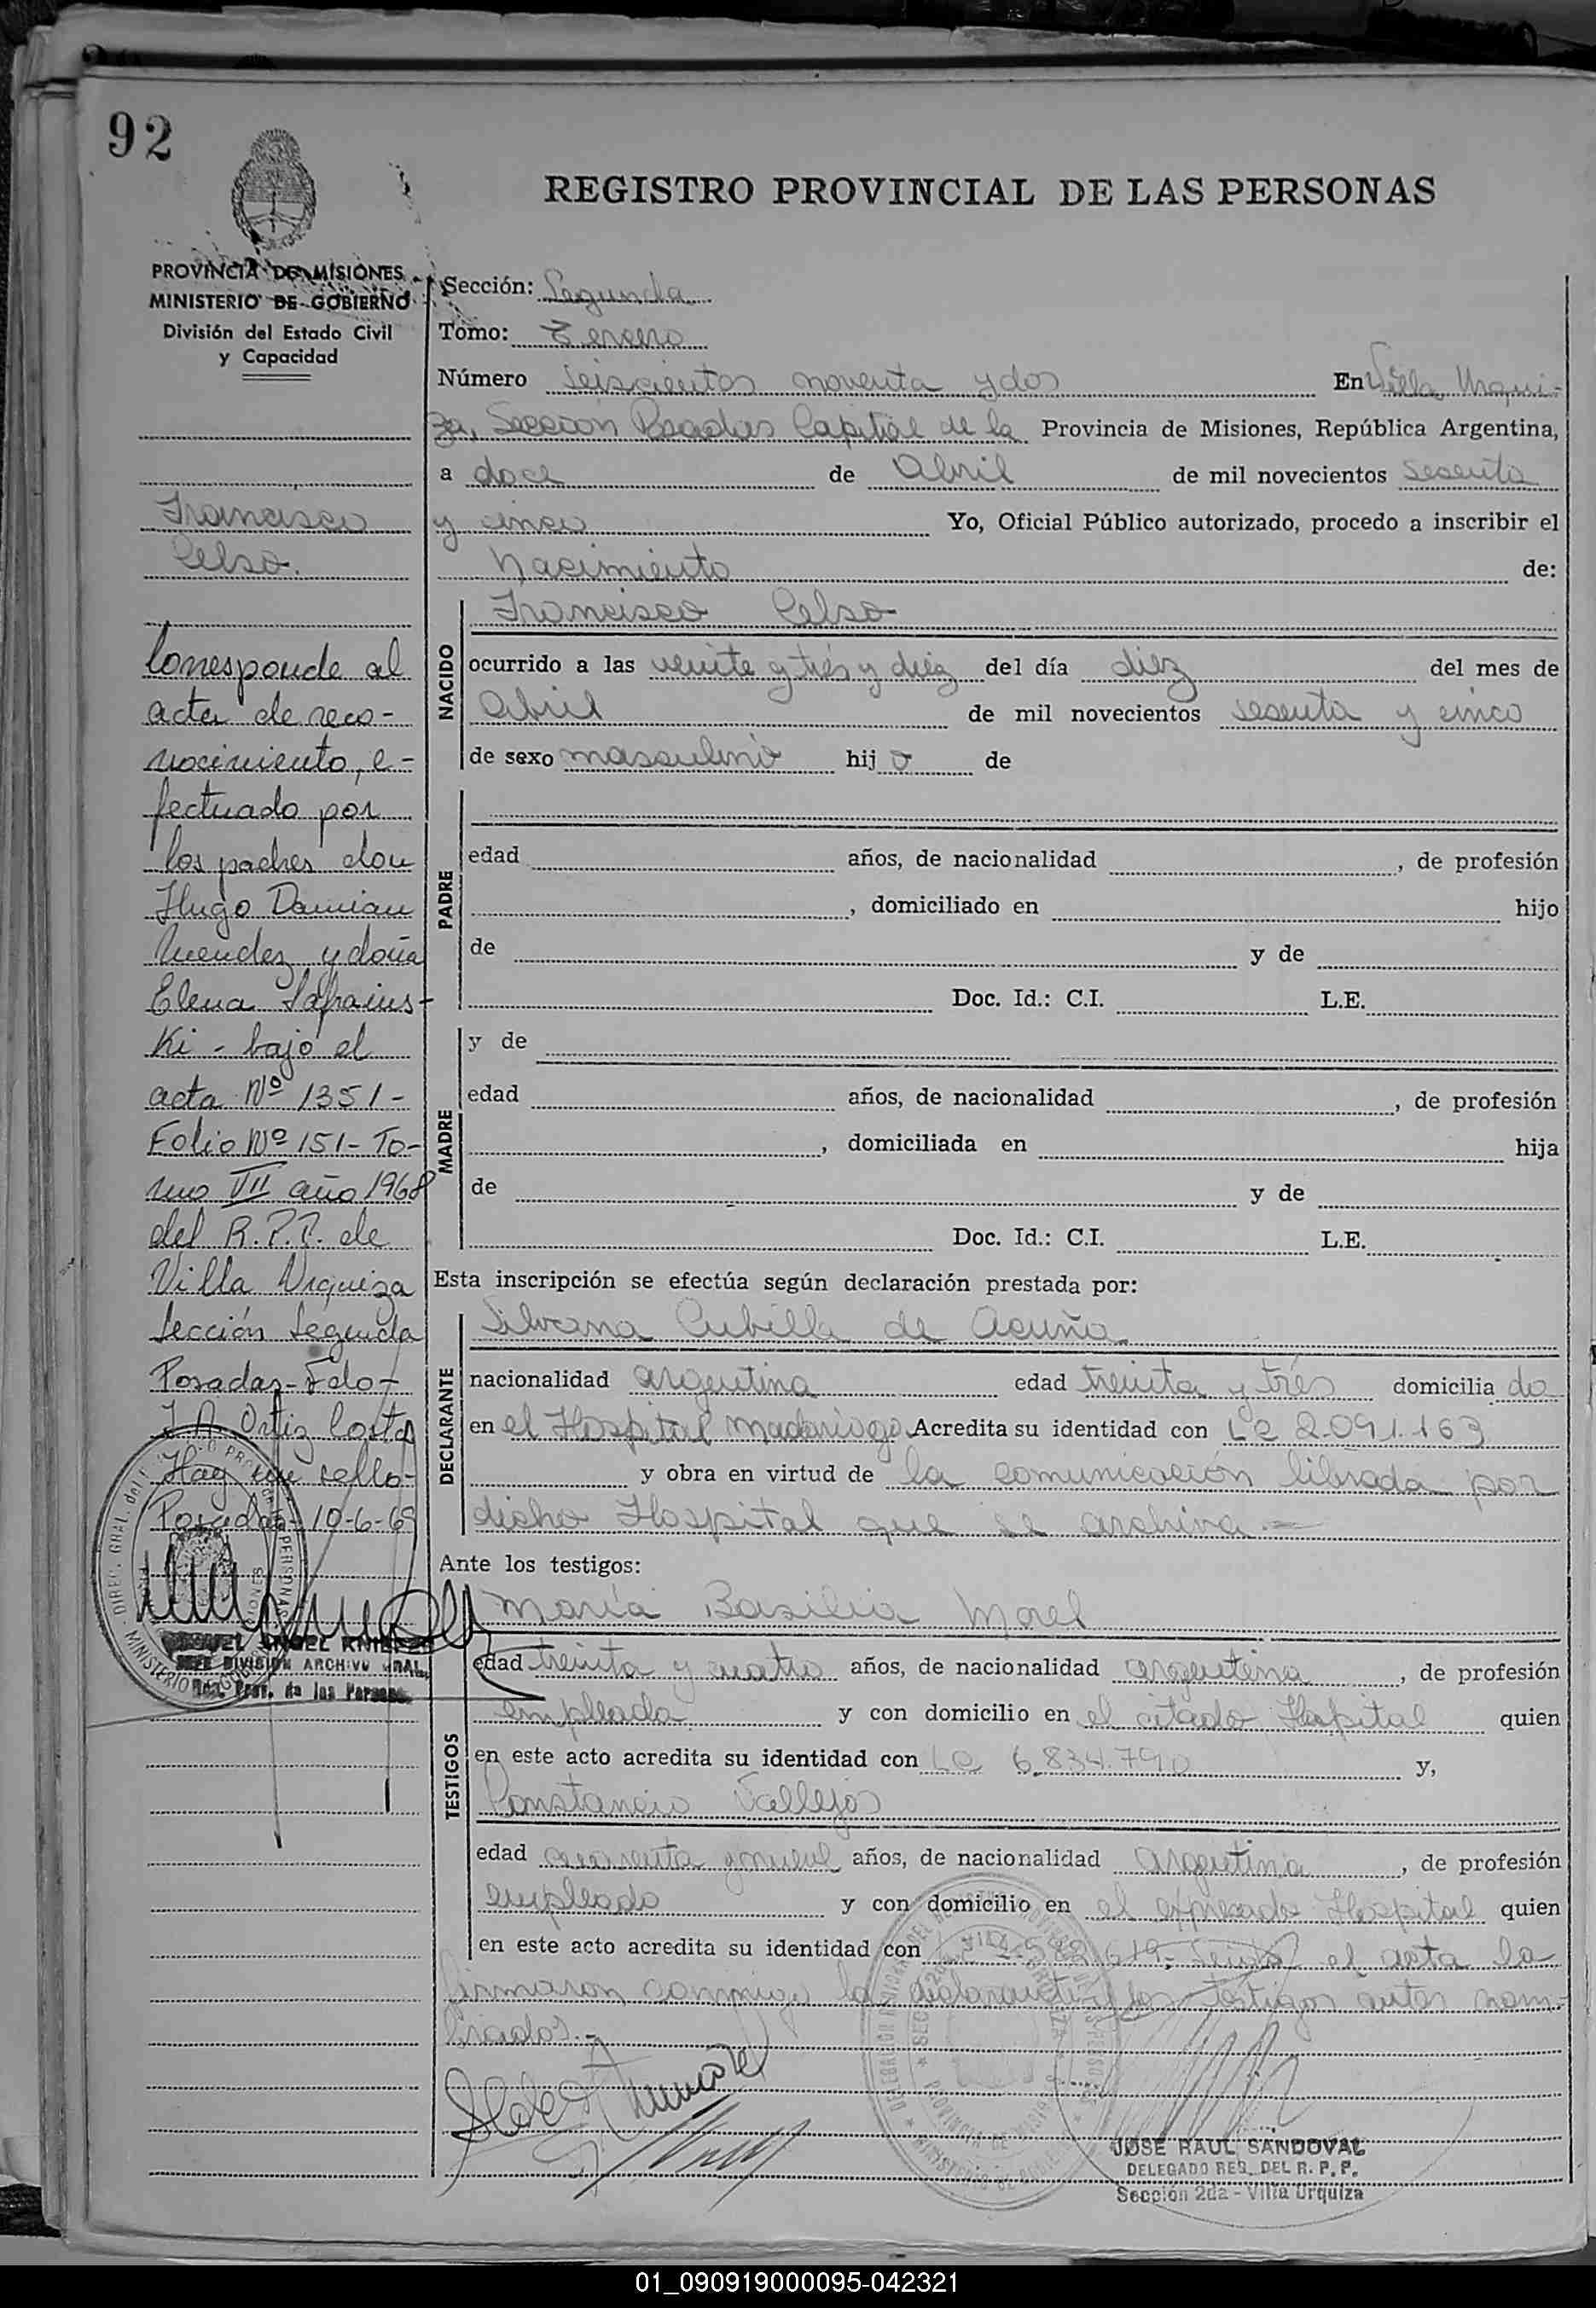 92
REGISTRO PROVINCIAL DE LAS PERSONAS
PROVINCIA DE MISIONES
MINISTERIO DE GOBIERNO
División del Estado Civil
y Capacidad
Francisco
Celso.
Corresponde al
acta de reco-
nocimiento, e-
fectuado por
los padres don
Hugo Damian
Mendez y doña
Elena
ki - bajo el
acta Nº 1351-
Folio Nº 151- To-
mo VII año 1968
del R.P.P. de
Villa Urquiza
Sección Segunda
Posadas- Fdo-
J.A. Ortiz Costa
Hay un sello-
Posadas- 10-6-69
MIGUEL ANGEL
JEFE DIVISION ARCHIVO GRAL.
Prov. de las Personas
Sección: Segunda
Tomo: Tercero
Número seiscientos noventa y dos En Villa Urqui-
za, Sección Posadas Capital de la Provincia de Misiones, República Argentina,
a doce de Abril de mil novecientos sesenta
y cinco Yo, Oficial Público autorizado, procedo a inscribir el
Nacimiento de:
NACIDO
Francisco Celso
ocurrido a las veinte y trés y diez del día diez del mes de
Abril de mil novecientos sesenta y cinco
de sexo masculino hijo de
PADRE
edad años, de nacionalidad , de profesión
, domiciliado en hijo
de y de
Doc. Id.: C.I. L.E.
MADRE
y de
edad años, de nacionalidad , de profesión
, domiciliada en hija
de y de
Doc. Id.: C.I. L.E.
Esta inscripción se efectúa según declaración prestada por:
DECLARANTE
Silvana Cubilla de Acuña
nacionalidad argentina edad treinta y trés domiciliada
en el Hospital Madariaga Acredita su identidad con LC 2.091.163
y obra en virtud de la comunicación librada por
dicho Hospital que se archiva.-
Ante los testigos:
TESTIGOS
María Basilia Morel
edad treinta y cuatro años, de nacionalidad argentina, de profesión
empleada y con domicilio en el citado Hospital quien
en este acto acredita su identidad con LC 6.834.790 y,
Constancio Vallejos
edad cuarenta y nueve años, de nacionalidad Argentina, de profesión
empleado y con domicilio en el expresado Hospital quien
en este acto acredita su identidad con el acta la
firmaron conmigo la declarante y los testigos antes nom-
brados.-
JOSE RAUL SANDOVAL
DELEGADO RES. DEL R.P.P.
Sección 2da - Villa Urquiza
01_090919000095-042321